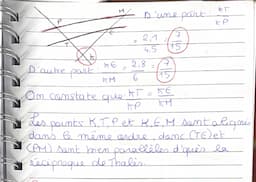 M
P
T
E
K
D'une part KT/KP
= 2.1/4.5 = 7/15
D'autre part KE/KM = 2.8/6 = 7/15
On constate que KT/KP = KE/KM
Les points K,T,P et K,E,M sont alignés
dans le même ordre donc (TE) et
(PM) sont bien parallèles d'après la
réciproque de Thalès.